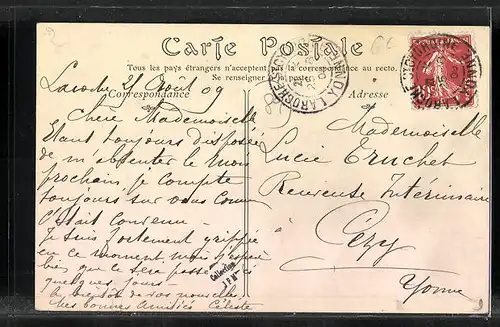 Carte Postale
Tous les pays étrangers n'acceptent pas la correspondance au recto.
Se renseigner à la poste.
Correspondance
Adresse
Laroche 21 Août 09
Chère Mademoiselle
Étant toujours disposée
de m'absenter le mois
prochain je compte
toujours sur vous comme
c'était convenu —
Je suis fortement grippée
en ce moment mais j'espère
bien que ce sera passé
quelques jours —
de vos nouvelles
Mes bonnes amitiés Céleste
Mademoiselle
Lucie Truchet
Receveuse Intérimaire
à
Cézy
Yonne
Collection
J P M
LAROCHE